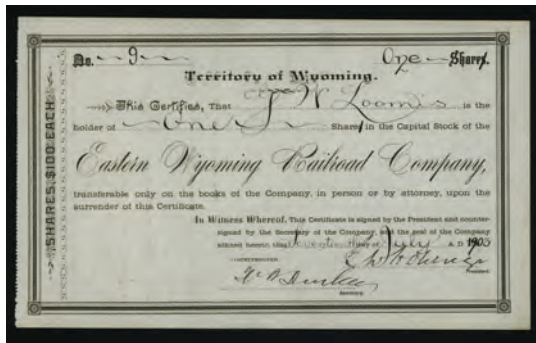 No. 9 One Share.
Territory of Wyoming.
This Certifies, That J W Loomis is the
holder of One Share in the Capital Stock of the
Eastern Wyoming Railroad Company,
transferable only on the books of the Company, in person or by attorney, upon the
surrender of this Certificate.
In Witness Whereof, This Certificate is signed by the President and counter-
signed by the Secretary of the Company, and the seal of the Company
affixed hereto this day of July A. D. 1903
COUNTERSIGNED
President.
Secretary.
SHARES, $100 EACH